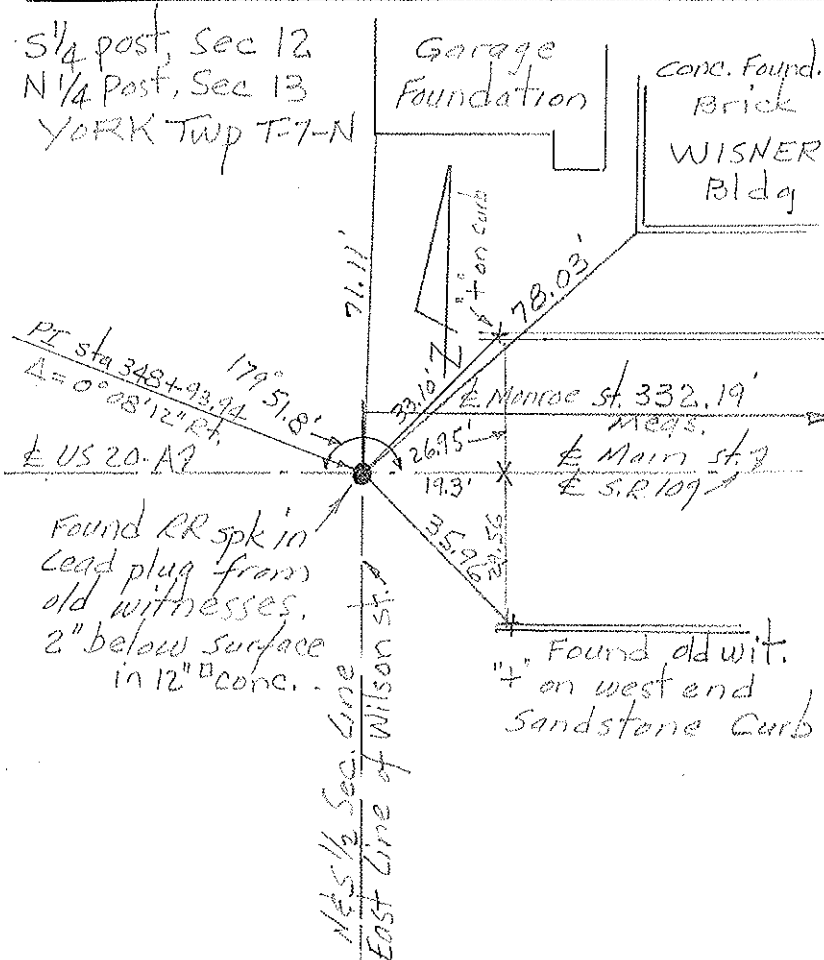 S 1/4 post, Sec 12
N 1/4 Post, Sec 13
YORK Twp T-7-N
Garage
Foundation
Conc. Found.
Brick
WISNER
Bldg
71.11'
"+" on curb
78.03'
Z
33.10'
PI sta 348+93.94
Δ = 0°08'12" Rt.
179° 51.8'
℄ Monroe St. 332.19'
Meas.
26.95'
℄ US 20-A
℄ Main St.
19.3'
℄ S.R. 109
Found RR spk in
Lead plug from
old witnesses.
2" below surface
in 12" □ conc.
35.96
"+" Found old wit.
on west end
Sandstone Curb
N & S 1/2 Sec. Line
East Line of Wilson St.